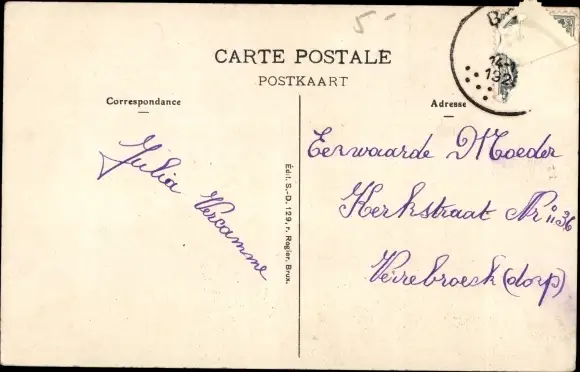 5-
CARTE POSTALE
POSTKAART
Correspondance
Adresse
14-
192
Julia Vercamme
Édit. S.-D. 129, r. Rogier, Brux.
Eerwaarde Moeder
Kerkstraat Nr 36
Verrebroeck (dorp)